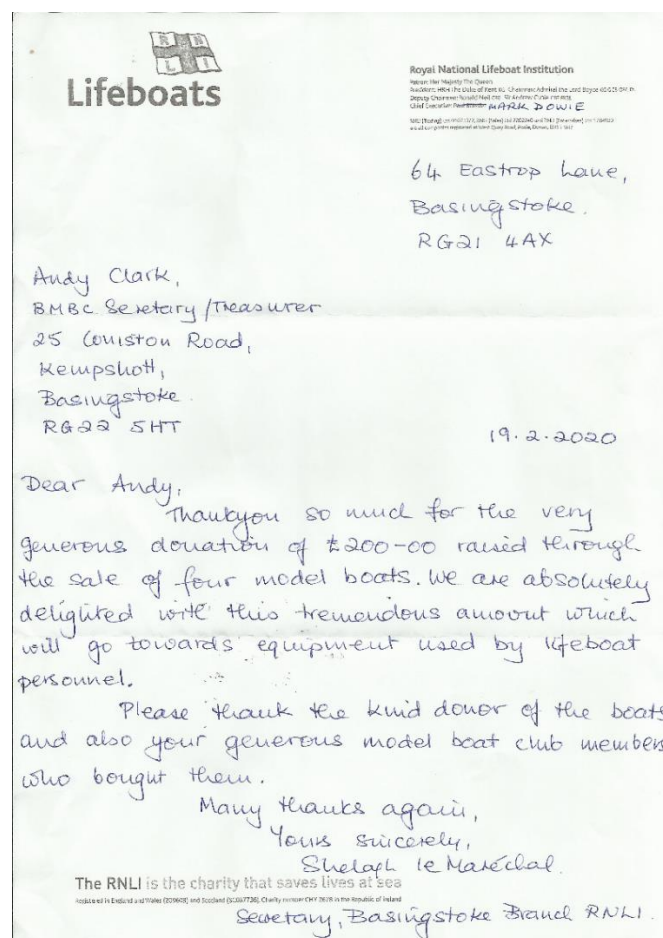 RNLI
Lifeboats
Royal National Lifeboat Institution
Patron: Her Majesty The Queen
President: HRH The Duke of Kent KG Chairman: Admiral the Lord Boyce
Chief Executive MARK DOWIE
64 Eastrop Lane,
Basingstoke.
RG21 4AX
Andy Clark,
BMBC Secretary/Treasurer
25 Coniston Road,
Kempshott,
Basingstoke.
RG22 5HT
19.2.2020
Dear Andy,
Thankyou so much for the very
generous donation of £200-00 raised through
the sale of four model boats. We are absolutely
delighted with this tremendous amount which
will go towards equipment used by lifeboat
personnel.
Please thank the kind donor of the boats
and also your generous model boat club members
who bought them.
Many thanks again,
Yours sincerely,
Shelagh le Maréchal.
The RNLI is the charity that saves lives at sea
Registered in England and Wales (209603) and Scotland (SC037736). Charity number CHY 2678 in the Republic of Ireland
Secretary, Basingstoke Branch RNLI.